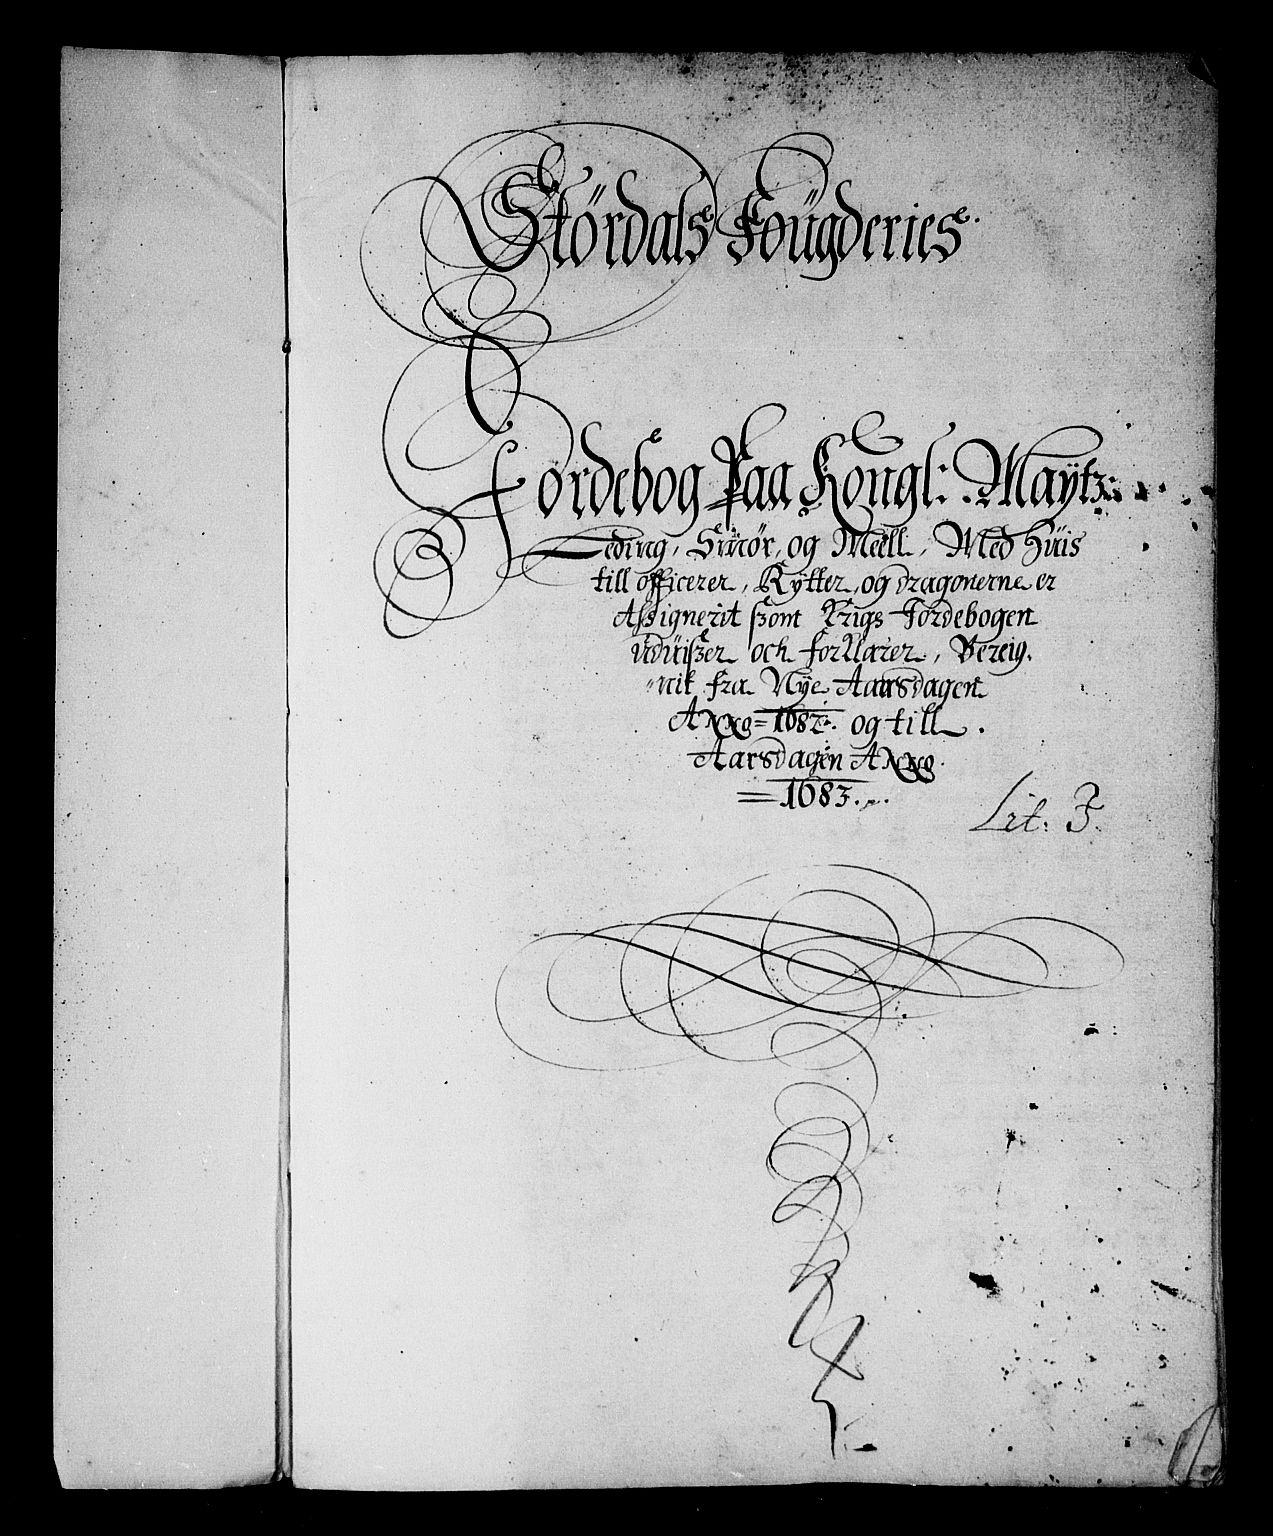 Stördals Foügderies
Jordebog Paa Kongl: Maÿtz:
Leding, Smör, og Meell, Med Hüis
till officerer, Rÿtter, og dragonerne er
Assignerit szom Krigs Jordebogen
üdüiszer och forklarer, Bereig,
nit fra Nÿe Aarsdagen
Anno 1682. og till
Aarsdagen Anno
1683.
Lit: F.